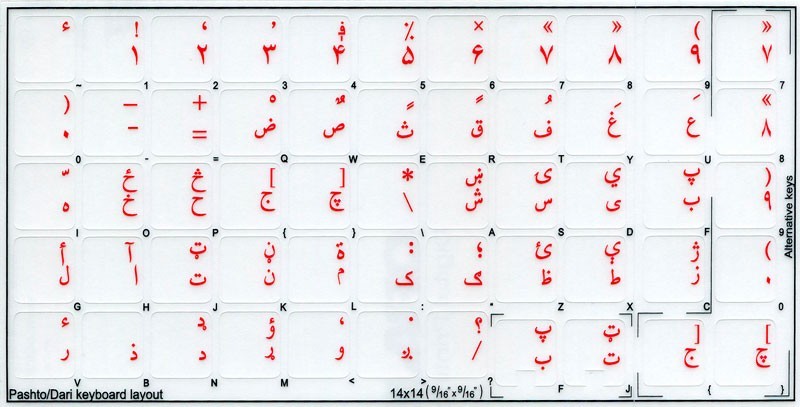 ء ! ٬ ٫ ؋ ٪ × « » ( »
۱ ۲ ۳ ۴ ۵ ۶ ۷ ۸ ۹ ۷
~ 1 2 3 4 5 6 7 8 9 7
) − + ْ ٌ ٍ ً ُ َ «
۰ - = ض ص ث ق ف غ ع ۸
0 - = Q W E R T Y U 8
ّ ځ څ [ ] * ښ ۍ ي پ )
ه خ ح ج چ \ ش س ی ب ۹
I O P { } \ A S D F 9
أ آ ټ ڼ ة : ؛ ئ ې ژ (
ل ا ت ن م ک ګ ظ ط ز ۰
G H J K L : " Z X C 0
ء ډ ؤ ، . ؟ پ ټ ] [
ر ذ د ړ و ږ / ب ت ج چ
V B N M < > ? F J { }
Pashto/Dari keyboard layout
14x14 (9/16"x9/16")
Alternative keys